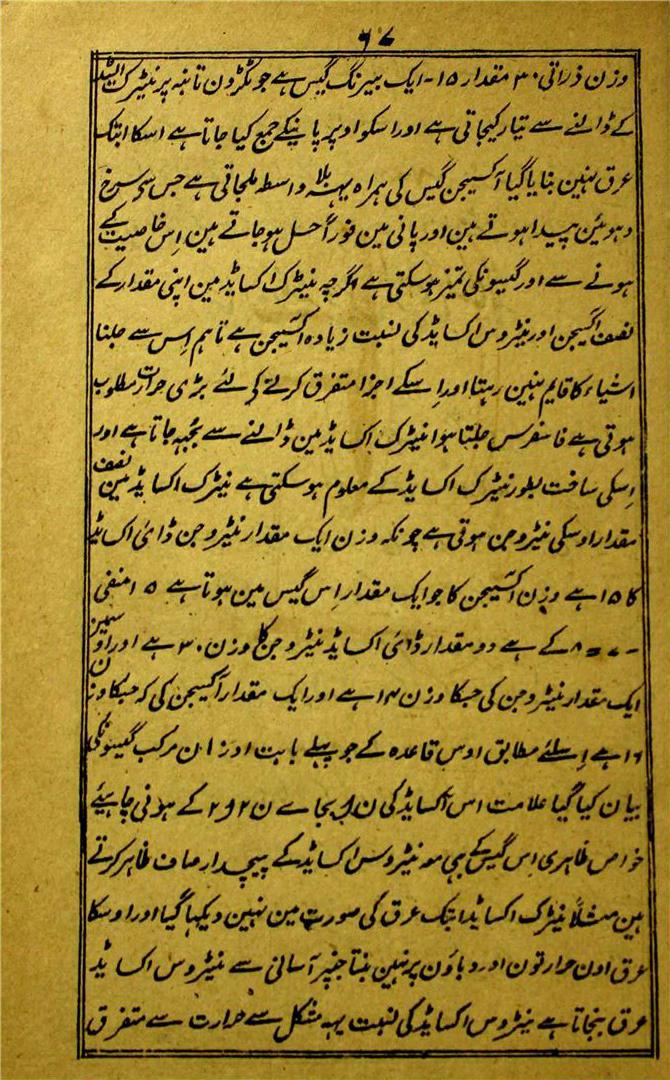 ۶۷
وزن ذراتی ۳۰ مقدار ۱۵- ایک بیرنگ گیس ہے جو ٹکڑون تانبہ پر نیٹرک ایسڈ
کے ڈالنے سے تیار کیجاتی ہے اور اسکو اوپر پانیکے جمع کیا جاتا ہے اسکا ابتک
عرق نہین بنایا گیا آکسیجن گیس کی ہمراہ یہہ بلا واسطہ ملجاتی ہے جس سے سرخ
دہوئین پیدا ہوتے ہین اور پانی مین فوراً حل ہوجاتے ہین اِس خاصیت کے
ہونے سے اور گیسونکی تمیز ہوسکتی ہے اگرچہ نیٹرک اکسایڈ مین اپنی مقدار کے
نصف اکسیجن اور نیٹروس اکسایڈ کی نسبت زیادہ اکسیجن ہے تاہم اِس سے جلنا
اشیاء کا قایم نہین رہتا اور اِسکے اجزا متفرق کرنے کی لئے بڑی حرارت مطلوب
ہوتی ہے فاسفرس جلتا ہوا نیٹرک اکسایڈ مین ڈالنے سے بُجہہ جاتا ہے اور
اِسکی ساخت بطور نیٹرک اکسایڈ کے معلوم ہوسکتی ہے نیٹرک اکسایڈ مین نصف
مقدار اوسکی نیٹروجن ہوتی ہے چونکہ وزن ایک مقدار نیٹروجن ڈائی اکسایڈ
کا ۱۵ ہے وزن اکسیجن کا جو ایک مقدار اِس گیس مین ہوتا ہے ۱۵ منفی
۷ = ۸ کے ہے دو مقدار ڈائی اکسایڈ نیٹروجن کا وزن ۳۰ ہے اور اوسمیز
ایک مقدار نیٹروجن کی جسکا وزن ۱۴ ہے اور ایک مقدار آکسیجن کی کہ جسکا وزن
۱۶ ہے اِسلئے مطابق اوس قاعدہ کے جو پہلے بابت اوزان مرکب گیسونکی
بیان کیا گیا علامت اس اکسایڈ کی ن و بجاے ن۲ و۲ کے ہونی چاہیئے
خواص ظاہری اِس گیس کے بہی مو نیٹروس اکسایڈ کے پیچدار صاف ظاہر کرتے
ہین مثلاً نیٹرک اکسایڈ ابتک عرق کی صورت مین نہین دیکہا گیا اور اوسکا
عرق اون حرارتون اور دباؤن پر نہین بنتا جنپر آسانی سے نیٹروس اکسایڈ
عرق بنجاتا ہے نیٹروس اکسایڈ کی نسبت یہہ مشکل سے حرارت سے متفرق